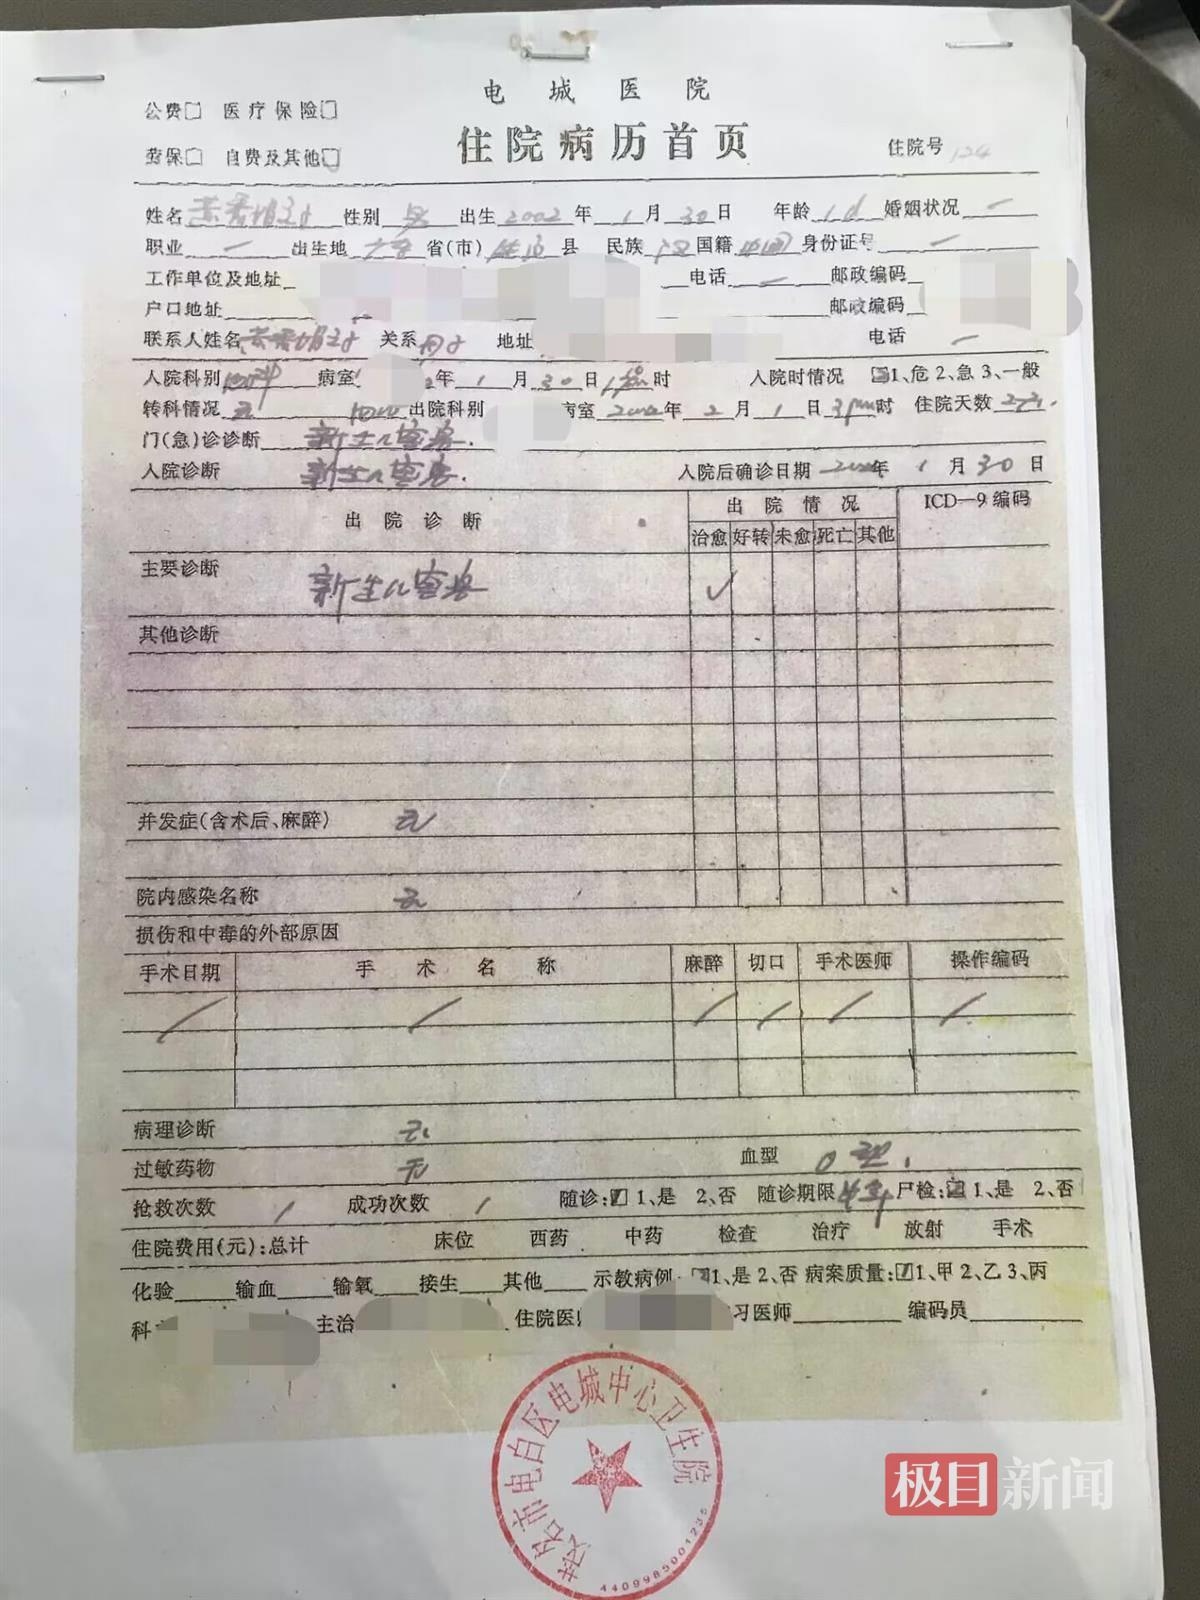 电城医院
公费□ 医疗保险□
住院病历首页
劳保□ 自费及其他□ 住院号 124
姓名 性别 男 出生 2002 年 1 月 30 日 年龄 1d 婚姻状况 一
职业 一 出生地 广东 省(市) 县 民族 汉 国籍 中国 身份证号 一
工作单位及地址 电话 一 邮政编码
户口地址 邮政编码
联系人姓名 关系 母子 地址 电话 一
入院科别 病室 年 1 月 30 日 时 入院时情况 1、危 2、急 3、一般
转科情况 无 出院科别 病室 2002 年 2 月 1 日 3pm 时 住院天数 2天
门(急)诊诊断 新生儿窒息.
入院诊断 新生儿窒息. 入院后确诊日期 2002 年 1 月 30 日
出院诊断 出院情况 ICD—9编码
治愈 好转 未愈 死亡 其他
主要诊断 新生儿窒息 ✓
其他诊断
并发症(含术后、麻醉) 无
院内感染名称 无
损伤和中毒的外部原因
手术日期 手术名称 麻醉 切口 手术医师 操作编码
/ / / / / /
病理诊断 无
过敏药物 无 血型 O型.
抢救次数 1 成功次数 1 随诊: 1、是 2、否 随诊期限 半年 尸检: 1、是 2、否
住院费用(元):总计 床位 西药 中药 检查 治疗 放射 手术
化验 输血 输氧 接生 其他 示教病例 1、是 2、否 病案质量: 1、甲 2、乙 3、丙
科 主治 住院医 习医师 编码员
茂名市电白区电城中心卫生院
4409985001235
极目新闻